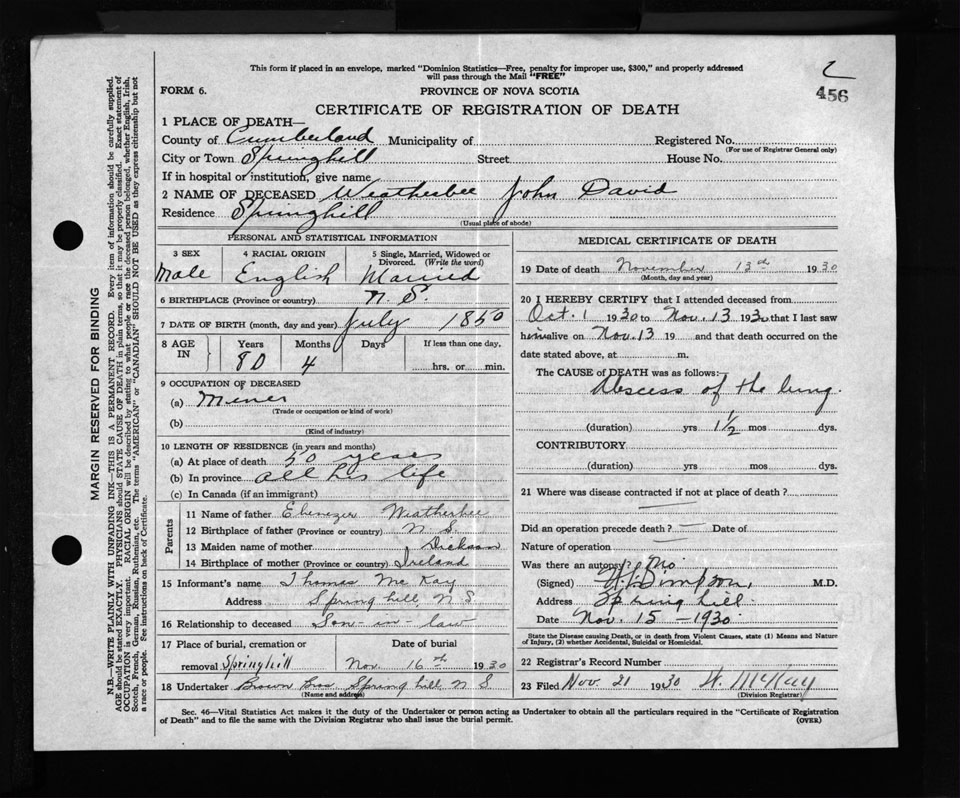 This form if placed in an envelope, marked "Dominion Statistics—Free, penalty for improper use, $300," and properly addressed
will pass through the Mail "FREE"
456
FORM 6.
PROVINCE OF NOVA SCOTIA
CERTIFICATE OF REGISTRATION OF DEATH
1 PLACE OF DEATH—
County of Cumberland Municipality of Registered No.
(For use of Registrar General only)
City or Town Springhill Street House No.
If in hospital or institution, give name
2 NAME OF DECEASED Weatherbee John David
Residence Springhill
(Usual place of abode)
PERSONAL AND STATISTICAL INFORMATION
3 SEX 4 RACIAL ORIGIN 5 Single, Married, Widowed or Divorced. (Write the word)
Male English Married
6 BIRTHPLACE (Province or country) N.S.
7 DATE OF BIRTH (month, day and year) July 1850
8 AGE IN Years Months Days If less than one day,
80 4 hrs. or min.
9 OCCUPATION OF DECEASED
(a) Miner
(Trade or occupation or kind of work)
(b)
(Kind of industry)
10 LENGTH OF RESIDENCE (in years and months)
(a) At place of death 50 years
(b) In province all his life
(c) In Canada (if an immigrant)
Parents
11 Name of father Ebenezer Weatherbee
12 Birthplace of father (Province or country) N.S.
13 Maiden name of mother Dickson
14 Birthplace of mother (Province or country) Ireland
15 Informant's name Thomas McKay
Address Springhill, N S
16 Relationship to deceased Son-in-law
17 Place of burial, cremation or Date of burial
removal Springhill Nov. 16th 1930
18 Undertaker Brown Bros. Springhill N S
(Name and address)
MEDICAL CERTIFICATE OF DEATH
19 Date of death November 13th 1930
(Month, day and year)
20 I HEREBY CERTIFY that I attended deceased from
Oct. 1 1930 to Nov. 13 1930 that I last saw
him alive on Nov. 13 19 and that death occurred on the
date stated above, at m.
The CAUSE of DEATH was as follows:
Abscess of the lung.
(duration) yrs 1½ mos dys.
CONTRIBUTORY
(duration) yrs mos dys.
21 Where was disease contracted if not at place of death?
Did an operation precede death? — Date of
Nature of operation
Was there an autopsy? No
(Signed) Simpson, M.D.
Address Springhill.
Date Nov. 15 - 1930
State the Disease causing Death, or in death from Violent Causes, state (1) Means and Nature
of Injury, (2) whether Accidental, Suicidal or Homicidal.
22 Registrar's Record Number
23 Filed Nov. 21 1930 W. McKay
(Division Registrar)
Sec. 46—Vital Statistics Act makes it the duty of the Undertaker or person acting as Undertaker to obtain all the particulars required in the "Certificate of Registration
of Death" and to file the same with the Division Registrar who shall issue the burial permit.
(OVER)
MARGIN RESERVED FOR BINDING
N.B.—WRITE PLAINLY WITH UNFADING INK—THIS IS A PERMANENT RECORD. Every item of information should be carefully supplied.
AGE should be stated EXACTLY. PHYSICIANS should STATE CAUSE OF DEATH in plain terms, so that it may be properly classified. Exact statement of
OCCUPATION is very important. RACIAL ORIGIN will be described by stating to what people or race the deceased person belonged, whether English, Irish,
Scotch, French, German, Russian, Ruthenian, etc. The terms "AMERICAN" or "CANADIAN" SHOULD NOT BE USED as they express citizenship but not
a race or people. See instructions on back of Certificate.